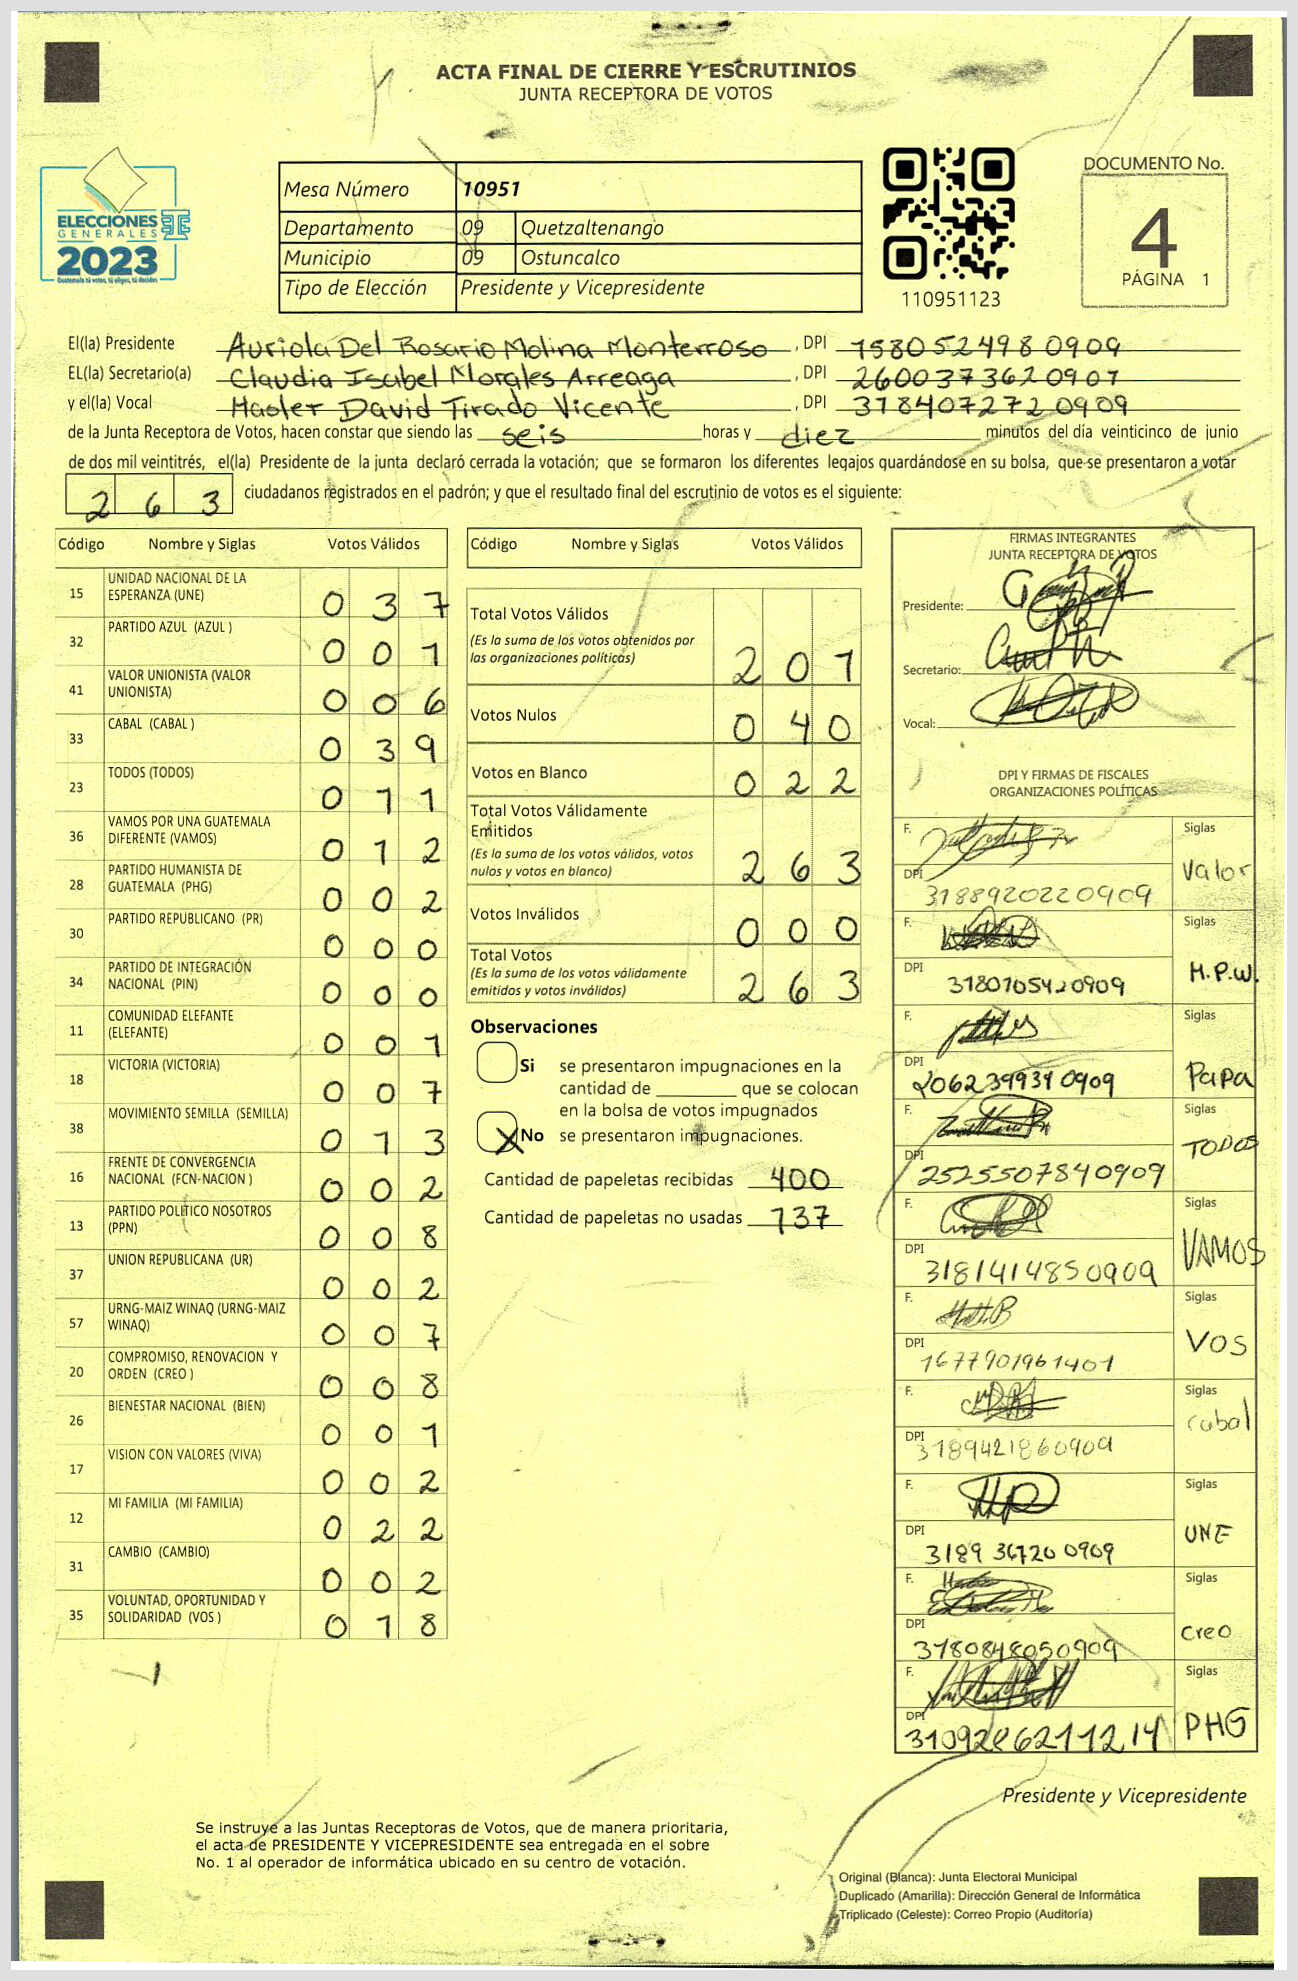 ACTA FINAL DE CIERRE Y ESCRUTINIOS
JUNTA RECEPTORA DE VOTOS
ELECCIONES
GENERALES
2023
Guatemala tú votas, tú eliges, tú decides
Mesa Número 10951
Departamento 09 Quetzaltenango
Municipio 09 Ostuncalco
Tipo de Elección Presidente y Vicepresidente
110951123
DOCUMENTO No.
4
PÁGINA 1
El(la) Presidente Auriola Del Rosario Molina Monterroso, DPI 1580524980909
EL(la) Secretario(a) Claudia Isabel Morales Arreaga, DPI 2600373620907
y el(la) Vocal Hasler David Tirado Vicente, DPI 3184072720909
de la Junta Receptora de Votos, hacen constar que siendo las seis horas y diez minutos del día veinticinco de junio
de dos mil veintitrés, el(la) Presidente de la junta declaró cerrada la votación; que se formaron los diferentes legajos quardándose en su bolsa, que se presentaron a votar
2 6 3 ciudadanos registrados en el padrón; y que el resultado final del escrutinio de votos es el siguiente:
Código Nombre y Siglas Votos Válidos
15 UNIDAD NACIONAL DE LA ESPERANZA (UNE) 0 3 7
32 PARTIDO AZUL (AZUL ) 0 0 1
41 VALOR UNIONISTA (VALOR UNIONISTA) 0 0 6
33 CABAL (CABAL ) 0 3 9
23 TODOS (TODOS) 0 1 1
36 VAMOS POR UNA GUATEMALA DIFERENTE (VAMOS) 0 1 2
28 PARTIDO HUMANISTA DE GUATEMALA (PHG) 0 0 2
30 PARTIDO REPUBLICANO (PR) 0 0 0
34 PARTIDO DE INTEGRACIÓN NACIONAL (PIN) 0 0 0
11 COMUNIDAD ELEFANTE (ELEFANTE) 0 0 1
18 VICTORIA (VICTORIA) 0 0 7
38 MOVIMIENTO SEMILLA (SEMILLA) 0 1 3
16 FRENTE DE CONVERGENCIA NACIONAL (FCN-NACION ) 0 0 2
13 PARTIDO POLITICO NOSOTROS (PPN) 0 0 8
37 UNION REPUBLICANA (UR) 0 0 2
57 URNG-MAIZ WINAQ (URNG-MAIZ WINAQ) 0 0 7
20 COMPROMISO, RENOVACION Y ORDEN (CREO ) 0 0 8
26 BIENESTAR NACIONAL (BIEN) 0 0 1
17 VISION CON VALORES (VIVA) 0 0 2
12 MI FAMILIA (MI FAMILIA) 0 2 2
31 CAMBIO (CAMBIO) 0 0 2
35 VOLUNTAD, OPORTUNIDAD Y SOLIDARIDAD (VOS ) 0 1 8
Código Nombre y Siglas Votos Válidos
Total Votos Válidos 2 0 1
(Es la suma de los votos obtenidos por
las organizaciones políticas)
Votos Nulos 0 4 0
Votos en Blanco 0 2 2
Total Votos Válidamente
Emitidos
(Es la suma de los votos válidos, votos
nulos y votos en blanco) 2 6 3
Votos Inválidos 0 0 0
Total Votos
(Es la suma de los votos válidamente
emitidos y votos inválidos) 2 6 3
Observaciones
Si se presentaron impugnaciones en la
cantidad de ________ que se colocan
en la bolsa de votos impugnados
X No se presentaron impugnaciones.
Cantidad de papeletas recibidas 400
Cantidad de papeletas no usadas 137
FIRMAS INTEGRANTES
JUNTA RECEPTORA DE VOTOS
Presidente:
Secretario:
Vocal:
DPI Y FIRMAS DE FISCALES
ORGANIZACIONES POLÍTICAS
F. Siglas
Valor
DPI 3188920220909
F. Siglas
M.P.W.
DPI 3180105420909
F. Siglas
Papa
DPI 2062399390909
F. Siglas
TODOS
DPI 2525507840909
F. Siglas
VAMOS
DPI 3181414850909
F. Siglas
VOS
DPI 1677901961401
F. Siglas
cabal
DPI 3189421860909
F. Siglas
UNE
DPI 3189 36720 0909
F. Siglas
Creo
DPI 3180848050909
F. Siglas
PHG
DPI
Presidente y Vicepresidente
Se instruye a las Juntas Receptoras de Votos, que de manera prioritaria,
el acta de PRESIDENTE Y VICEPRESIDENTE sea entregada en el sobre
No. 1 al operador de informática ubicado en su centro de votación.
Original (Blanca): Junta Electoral Municipal
Duplicado (Amarilla): Dirección General de Informática
Triplicado (Celeste): Correo Propio (Auditoría)